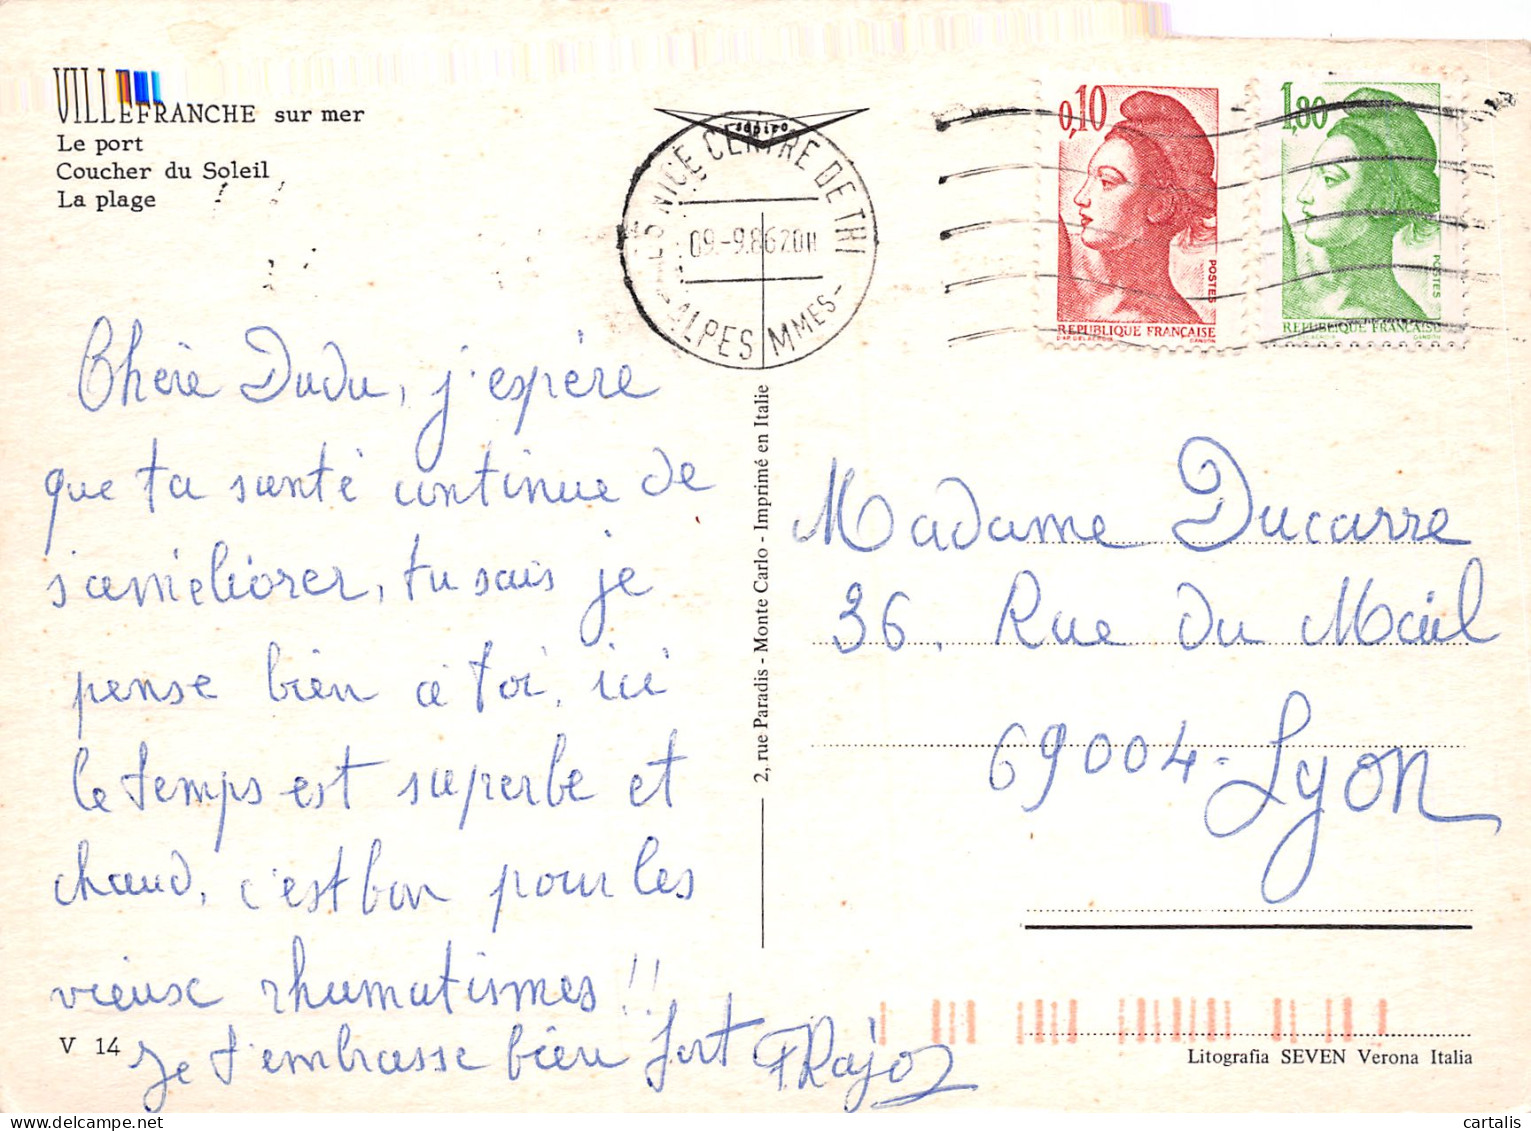 VILLEFRANCHE sur mer
Le port
Coucher du Soleil
La plage
sapiro
NICE CENTRE DE TRI
09.-9.86 20H
ALPES MMES-
0,10
POSTES
REPUBLIQUE FRANÇAISE
D'AP. DELACROIX GANDON
1,80
POSTES
REPUBLIQUE FRANÇAISE
GANDON
Chère Dudu, j'espère
que ta santé continue de
s'améliorer, tu sais je
pense bien à toi, ici
le temps est superbe et
chaud, c'est bon pour les
vieux rhumatismes !!
Je t'embrasse bien fort
2, rue Paradis - Monte Carlo - Imprimé en Italie
Madame Ducarre
36, Rue du Mail
69004 - Lyon
V 14
Litografia SEVEN Verona Italia
cartalis